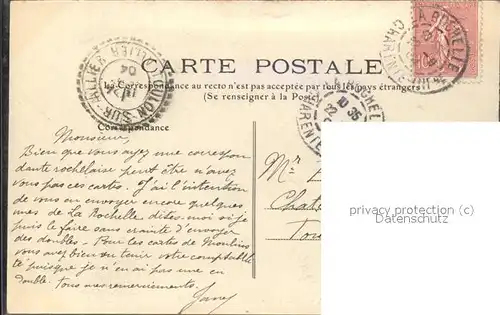 CARTE POSTALE
La Correspondance au recto n'est pas acceptée par tous les pays étrangers
(Se renseigner à la Poste)
Correspondance
LA PALLICE
LA ROCHELLE
10 35
SUR-ALLIER
ALLIER
04
Monsieur
Bien que vous ayez une correspon
dante rochelaise peut être n'avez
vous pas ces cartes. J'ai l'intention
de vous en envoyer encore quelques
unes de La Rochelle dites-moi si je
puis le faire sans crainte d'envoyer
des doubles. Pour les cartes de Moulins
vous avez bien su tenir votre comptabi
lité puisque je n'en ai pas une en
double. Tous mes remerciements.
Mr
privacy protection (c)
Datenschutz